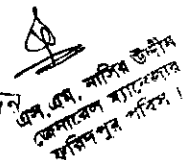 এস, এম, নাসির উদ্দীন
জেনারেল ম্যানেজার
ফরিদপুর পবিস।